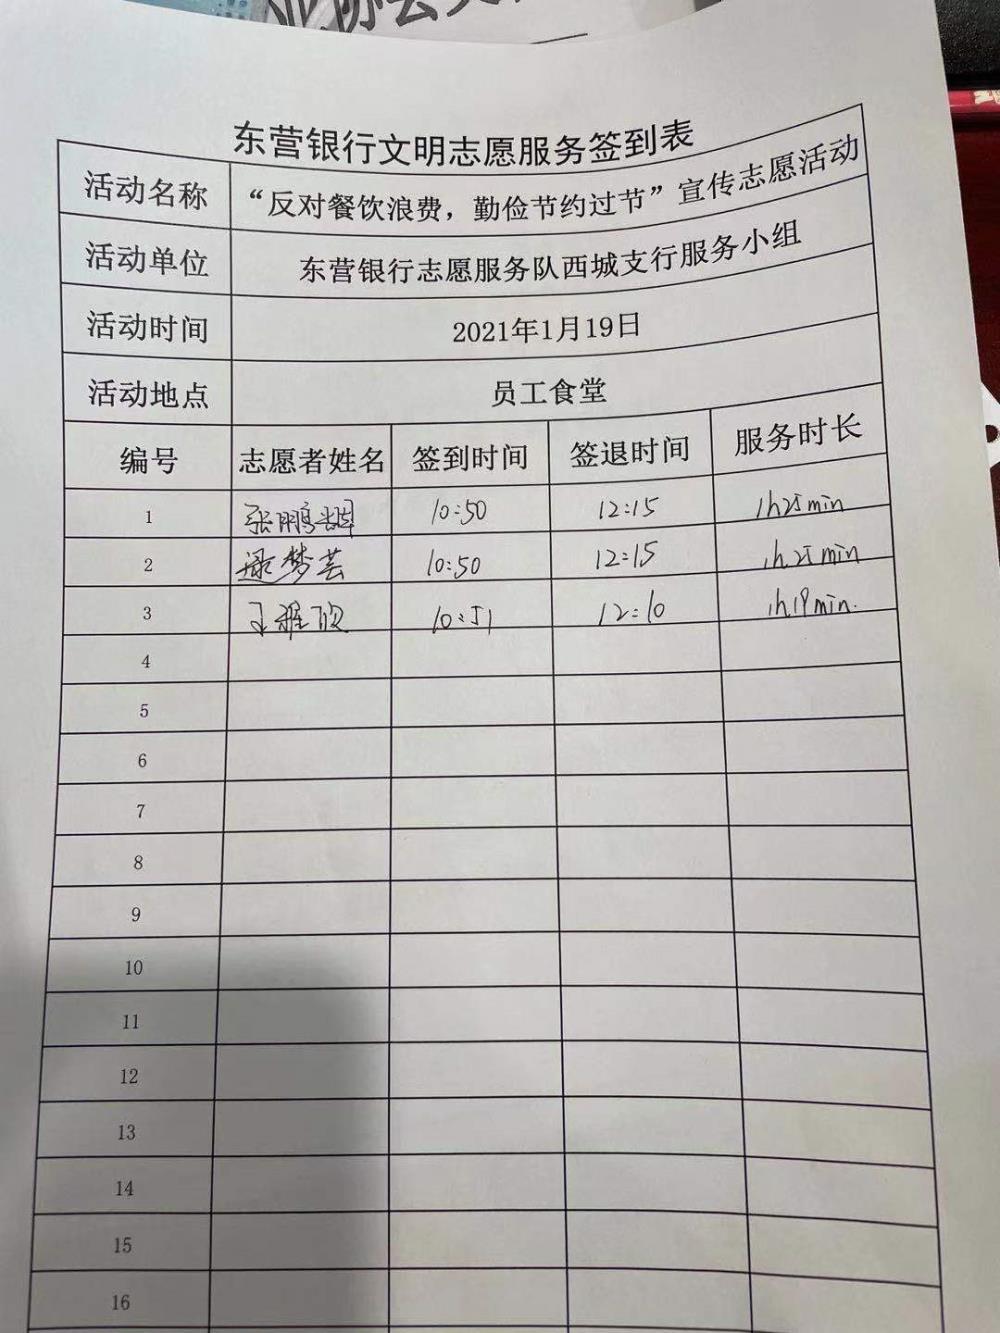 业协会
东营银行文明志愿服务签到表
活动名称 “反对餐饮浪费，勤俭节约过节”宣传志愿活动
活动单位 东营银行志愿服务队西城支行服务小组
活动时间 2021年1月19日
活动地点 员工食堂
编号 志愿者姓名 签到时间 签退时间 服务时长
1 张鹏 10:50 12:15 1h25min
2 逯梦芸 10:50 12:15 1h25min
3 王雅欣 10:51 12:10 1h19min.
4
5
6
7
8
9
10
11
12
13
14
15
16